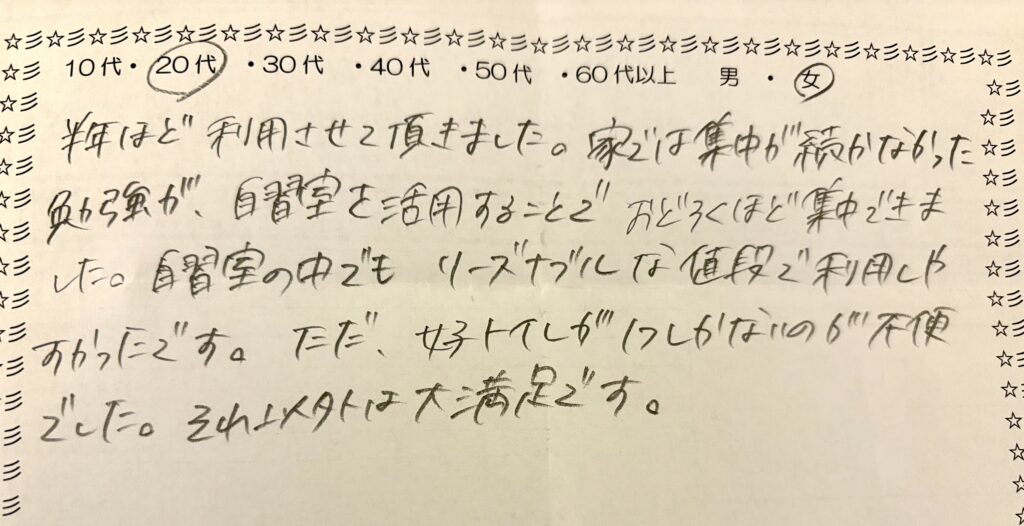 10代・20代・30代・40代・50代・60代以上 男・女
半年ほど利用させて頂きました。家では集中が続かなかった
勉強が、自習室を活用することでおどろくほど集中できま
した。自習室の中でもリーズナブルな値段で利用しや
すかったです。ただ、女子トイレが1つしかないのが不便
でした。それ以外は大満足です。